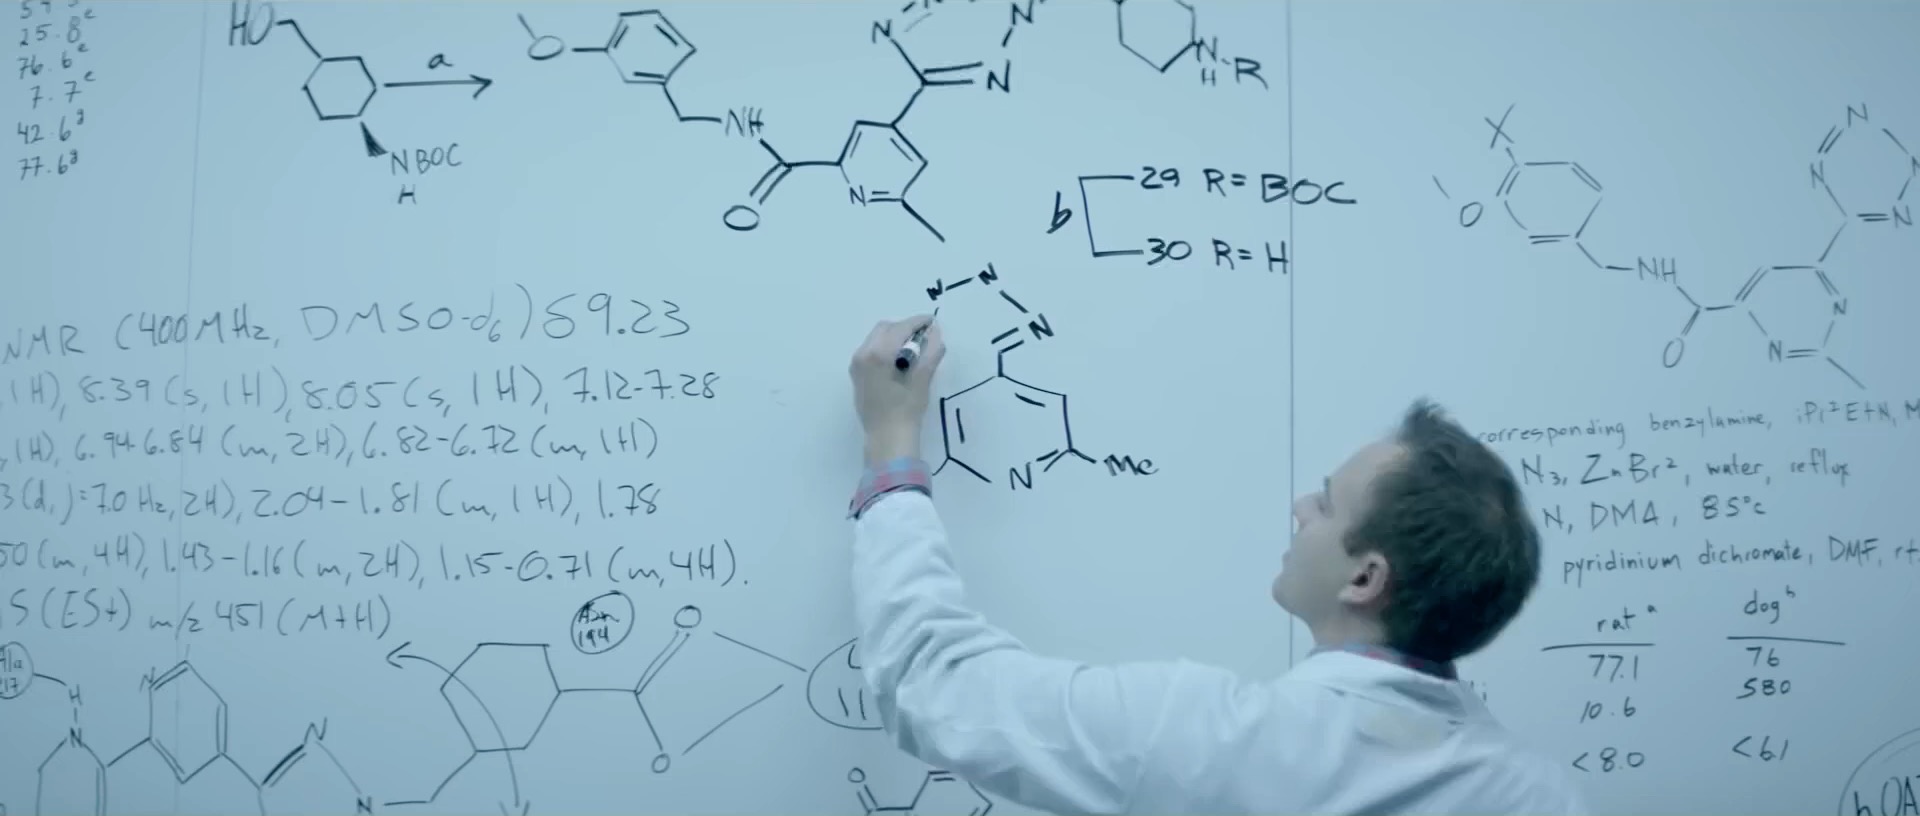 25.8e
76.6e
7.7e
42.6g
77.6g
HO
a
NBOC
H
O
NH
O
N
N
N
N
N
H
R
b
29 R= BOC
30 R= H
N
N
N
N
Me
NMR (400MHz, DMSO-d6) δ9.23
1H), 8.39 (s, 1H), 8.05 (s, 1H), 7.12-7.28
, 1H), 6.94-6.84 (m, 2H), 6.82-6.72 (m, 1H)
3 (d, J=7.0 Hz, 2H), 2.04-1.81 (m, 1H), 1.78
50 (m, 4H), 1.43-1.16 (m, 2H), 1.15-0.71 (m, 4H).
S (ES+) m/z 451 (M+H)
H
N
N
N
N
Asn
194
O
O
11
O
X
O
NH
O
N
N
N
N
N
N
corresponding benzylamine, iPr2EtN, M
N3, ZnBr2, water, reflux
N, DMA, 85°c
pyridinium dichromate, DMF, rt
rat a dog b
77.1 76
10.6 580
<8.0 <61
hOA